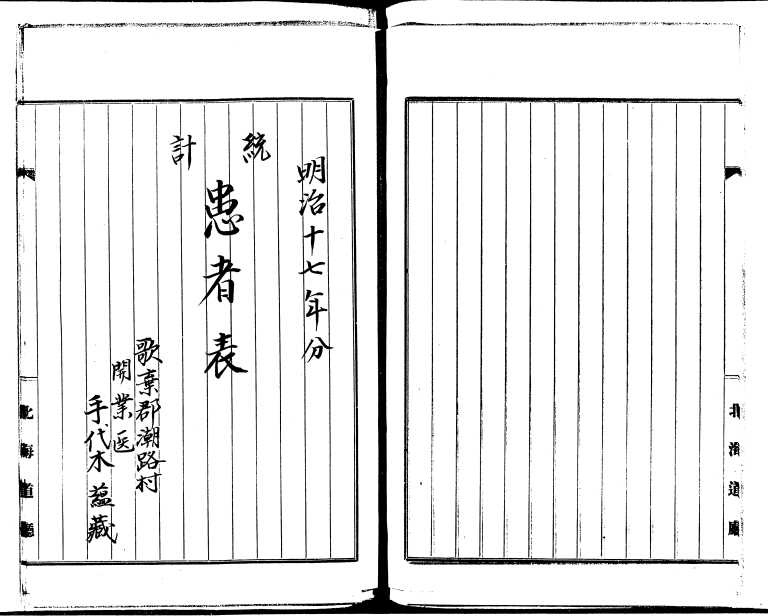 北海道廳
明治十七年分
統計
患者表
歌棄郡潮路村
開業医
手代木蘊藏
北海道廳